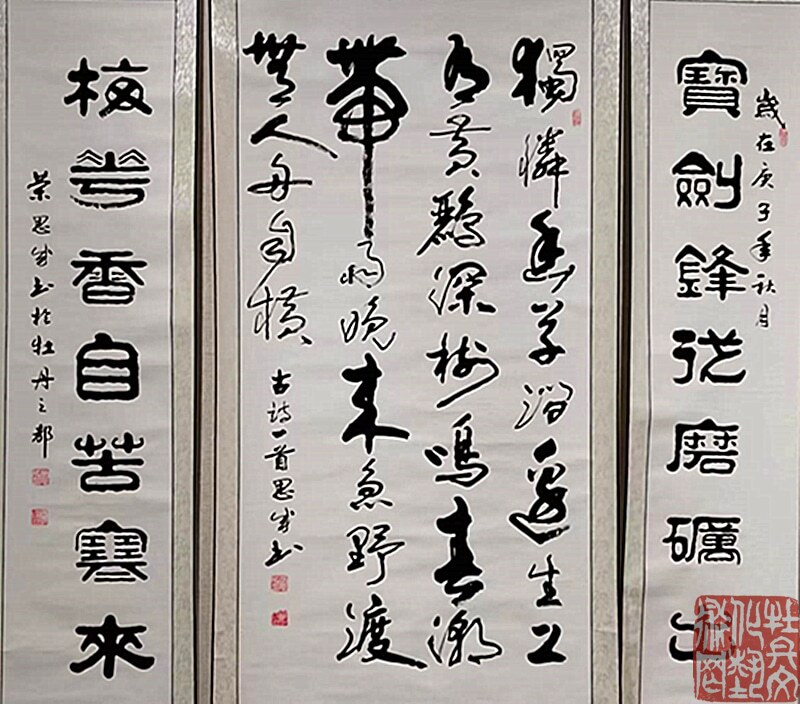 歲在庚子年秋月
寶劍鋒從磨礪出
獨憐幽草澗邊生上
有黄鸝深樹鳴春潮
帶雨晚來急野渡
無人舟自横
古詩一首思成书
梅花香自苦寒來
榮思成书於牡丹之都